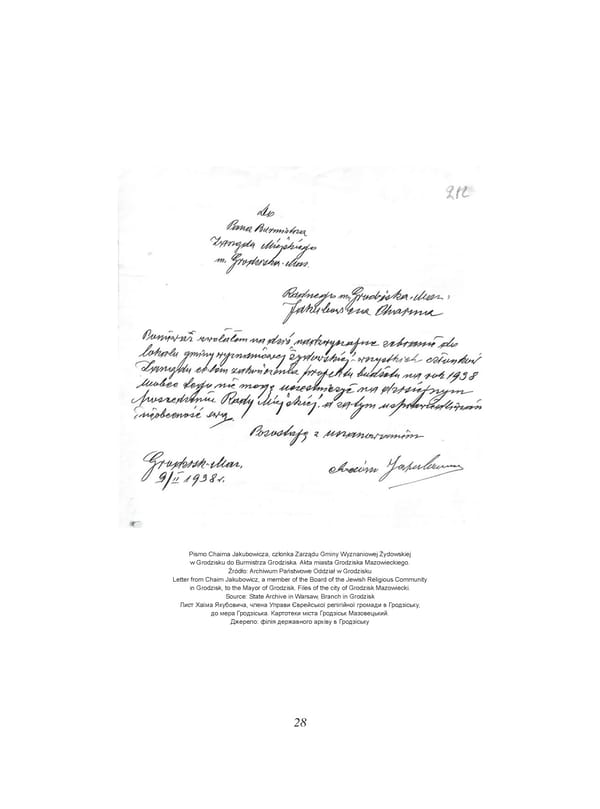 212
Do
Pana Burmistrza
Zarządu Miejskiego
m. Grodziska-Maz.
Radnego m. Grodziska-Maz.
Jakubowicza Chaima
Ponieważ zwołałem na dziś nadzwyczajne zebranie do
lokalu gminy wyznaniowej żydowskiej wszystkich członków
Zarządu celem zatwierdzenia projektu budżetu na rok 1938
wobec tego nie mogę uczestniczyć na dzisiejszym
posiedzeniu Rady Miejskiej, a zatym usprawiedliwiam
nieobecność swą.
Pozostaję z uszanowaniem
Grodzisk-Maz.
9/II 1938 r.
Chaim Jakubowicz
Pismo Chaima Jakubowicza, członka Zarządu Gminy Wyznaniowej Żydowskiej
w Grodzisku do Burmistrza Grodziska. Akta miasta Grodziska Mazowieckiego.
Źródło: Archiwum Państwowe Oddział w Grodzisku
Letter from Chaim Jakubowicz, a member of the Board of the Jewish Religious Community
in Grodzisk, to the Mayor of Grodzisk. Files of the city of Grodzisk Mazowiecki.
Source: State Archive in Warsaw, Branch in Grodzisk
Лист Хаїма Якубовича, члена Управи Єврейської релігійної громади в Гродзіську,
до мера Гродзіська. Картотеки міста Гродзіськ Мазовецький.
Джерело: філія державного архіву в Гродзіську
28